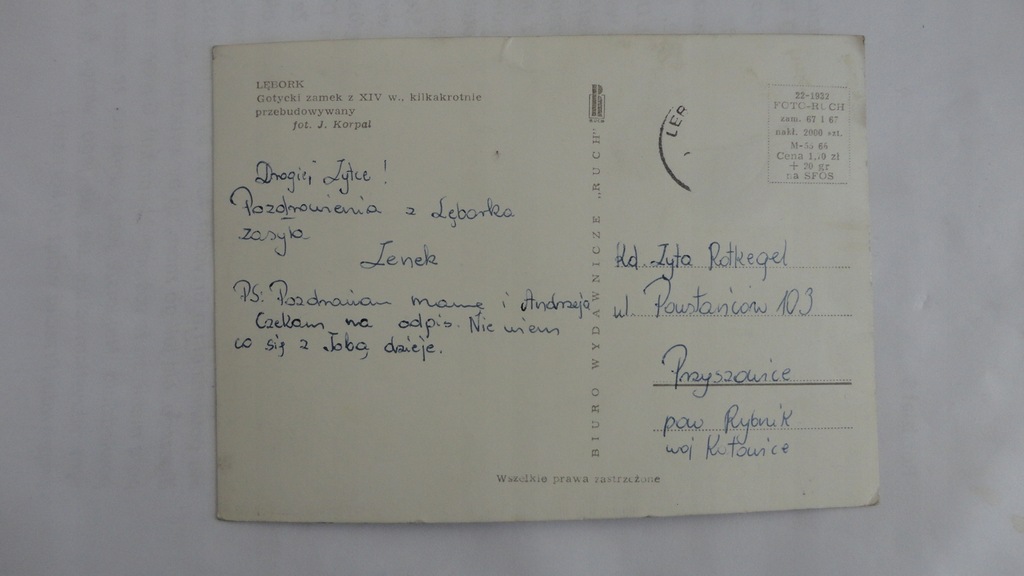 LĘBORK
Gotycki zamek z XIV w., kilkakrotnie
przebudowywany
fot. J. Korpal
Drogiej Zytce!
Pozdrowienia z Lęborka
zasyła
Zenek
PS: Pozdrawiam mamę i Andrzeja
Czekam na odpis. Nie wiem
co się z Tobą dzieje.
BIURO WYDAWNICZE „RUCH”
LEB
22-1932
FOTO-RUCH
zam. 67 I 67
nakł. 2000 szt.
Cena 1,70 zł
+ 20 gr
na SFOS
Kol. Zyta Rotkegel
ul. Powstańców 103
Przyszowice
pow Rybnik
woj Katowice
Wszelkie prawa zastrzeżone